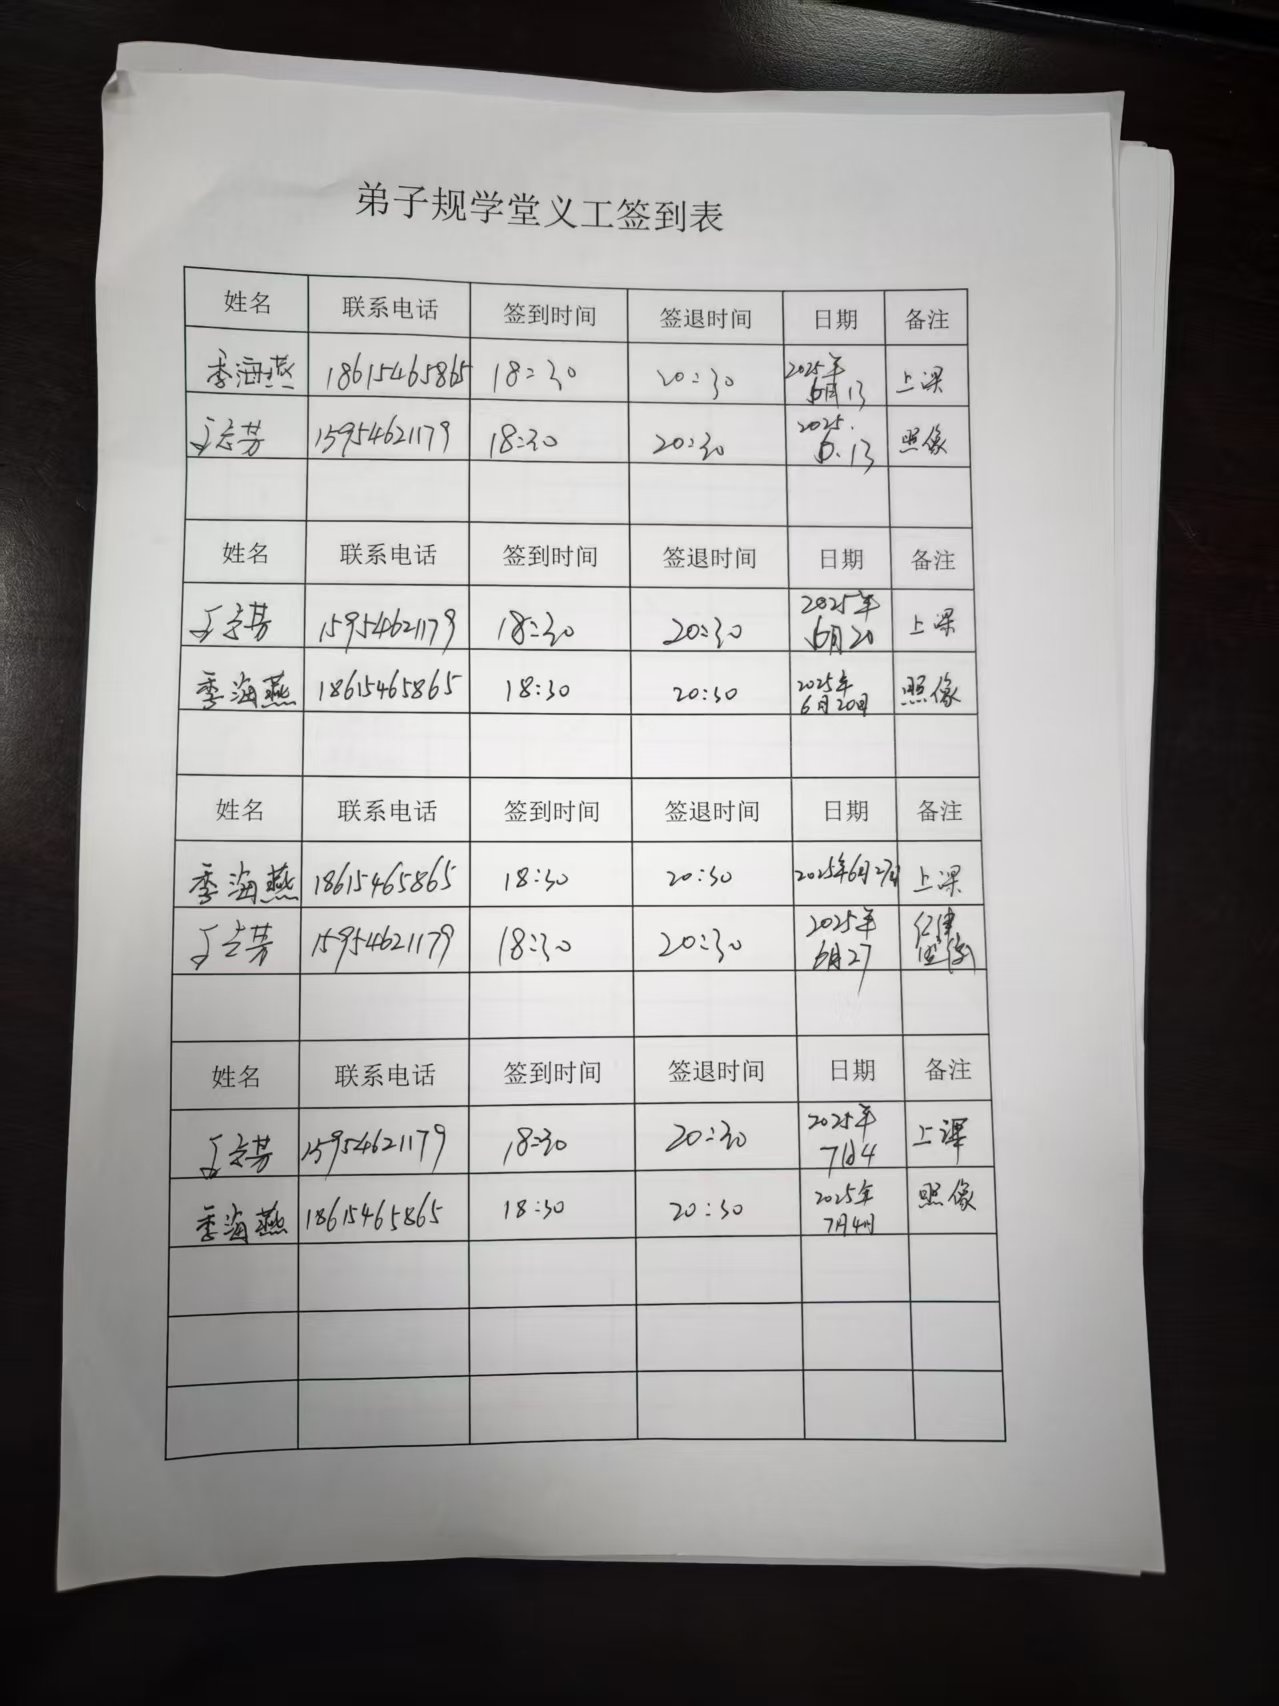 弟子规学堂义工签到表
姓名 联系电话 签到时间 签退时间 日期 备注
季海燕 18615465865 18:30 20:30 2025年6月13 上课
芳 15954621179 18:30 20:30 2025.6.13 照像
姓名 联系电话 签到时间 签退时间 日期 备注
芳 15954621179 18:30 20:30 2025年6月20 上课
季海燕 18615465865 18:30 20:30 2025年6月20日 照像
姓名 联系电话 签到时间 签退时间 日期 备注
季海燕 18615465865 18:30 20:30 2025年6月27日 上课
芳 15954621179 18:30 20:30 2025年6月27
姓名 联系电话 签到时间 签退时间 日期 备注
芳 15954621179 18:30 20:30 2025年7月4 上课
季海燕 18615465865 18:30 20:30 2025年7月4日 照像